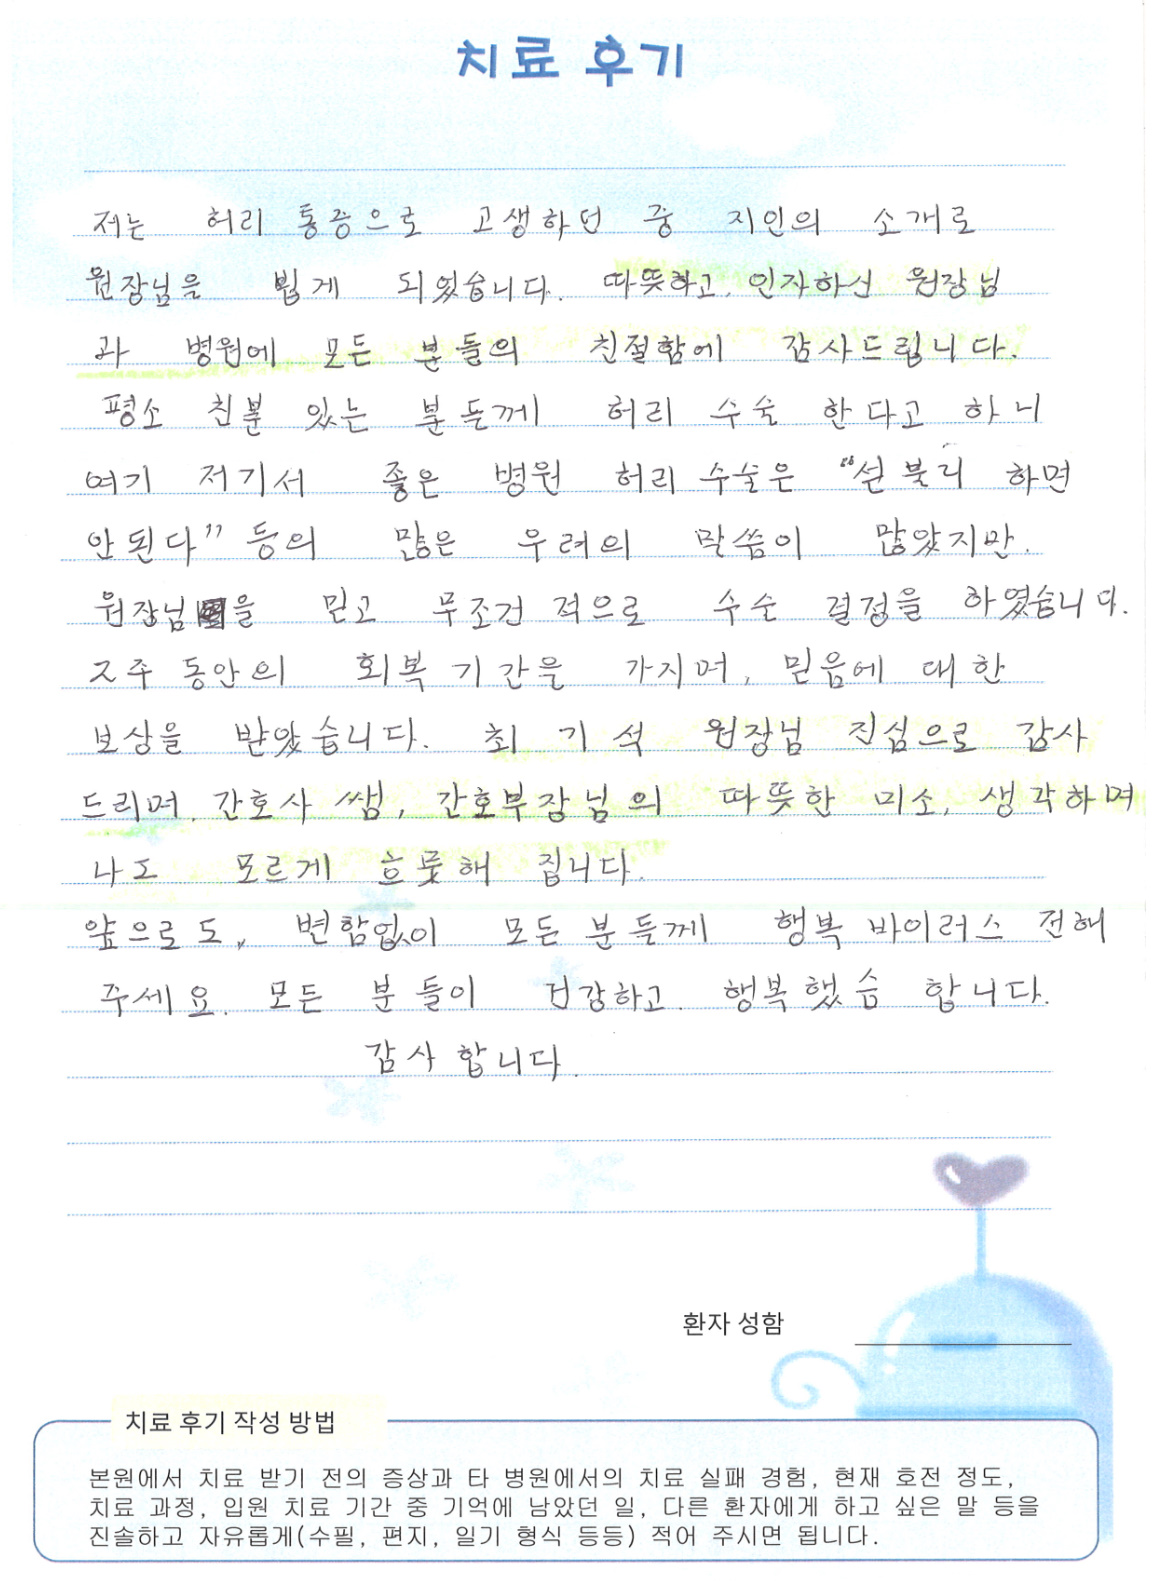 치료 후기
저는 허리 통증으로 고생하던 중 지인의 소개로
원장님을 뵙게 되었습니다. 따뜻하고, 인자하신 원장님
과 병원에 모든 분들의 친절함에 감사드립니다.
평소 친분 있는 분들께 허리 수술 한다고 하니
여기 저기서 좋은 병원 허리 수술은 "섣불리 하면
안된다" 등의 많은 우려의 말씀이 많았지만.
원장님을 믿고 무조건 적으로 수술 결정을 하였습니다.
2주 동안의 회복 기간을 가지며, 믿음에 대한
보상을 받았습니다. 최기석 원장님 진심으로 감사
드리며. 간호사 쌤, 간호부장님의 따뜻한 미소, 생각하며
나도 모르게 흐뭇해 집니다.
앞으로도, 변함없이 모든 분들께 행복 바이러스 전해
주세요. 모든 분들이 건강하고. 행복했슴 합니다.
감사합니다.
환자 성함
치료 후기 작성 방법
본원에서 치료 받기 전의 증상과 타 병원에서의 치료 실패 경험, 현재 호전 정도,
치료 과정, 입원 치료 기간 중 기억에 남았던 일, 다른 환자에게 하고 싶은 말 등을
진솔하고 자유롭게(수필, 편지, 일기 형식 등등) 적어 주시면 됩니다.